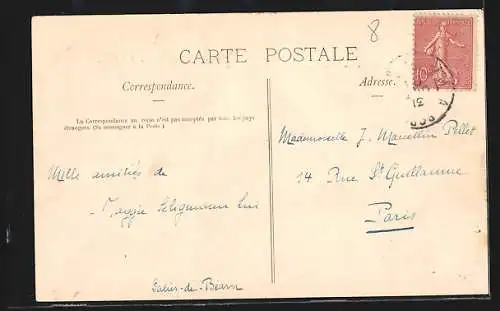 8
CARTE POSTALE
Correspondance.
Adresse.
La Correspondance au recto n'est pas acceptée par tous les pays
étrangers. (Se renseigner à la Poste.)
10
Mademoiselle J. Marcellin Pellet
14 Rue St Guillaume
Paris
Mille amitiés de
Maggie Seligmann
Salies-de-Béarn